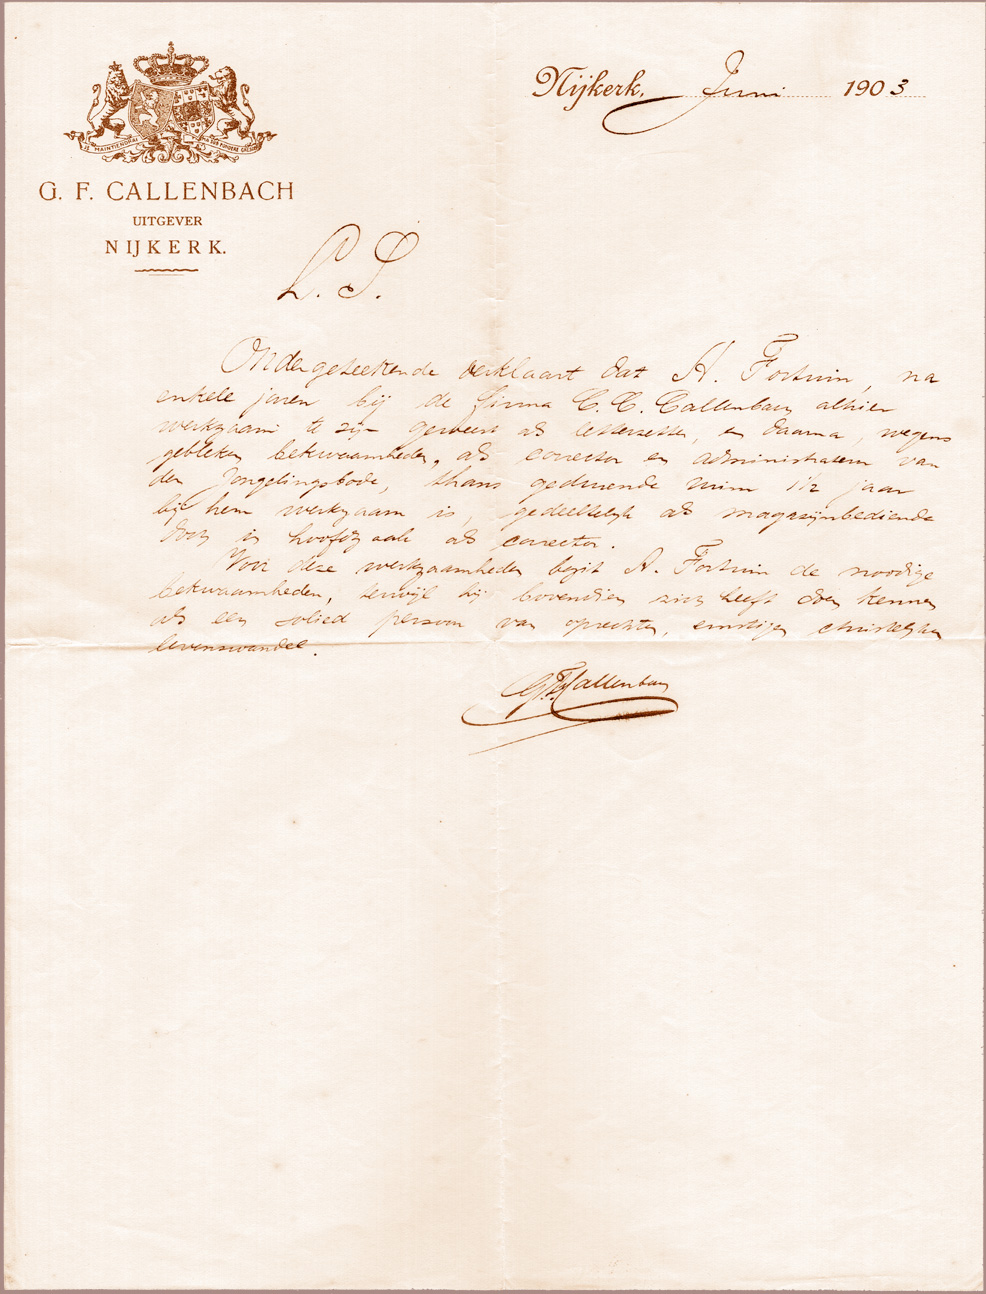 JE MAINTIENDRAI
G. F. CALLENBACH
UITGEVER
NIJKERK.
Nijkerk, Juni 1903
L. S.
Ondergeteekende verklaart dat A. Fortuin, na
enkele jaren bij de firma C. C. Callenbach alhier
werkzaam te zijn geweest als letterzetter, en daarna, wegens
gebleken bekwaamheden, als corrector en administrateur van
den Jongelingsbode, thans gedurende ruim 1 1/2 jaar
bij hem werkzaam is, gedeeltelijk als magazijnbediende
doch in hoofdzaak als corrector.
Voor deze werkzaamheden bezit A. Fortuin de noodige
bekwaamheden, terwijl hij bovendien zich heeft doen kennen
als een solied persoon van oprechten, ernstigen christelijken
levenswandel.
G. F. Callenbach